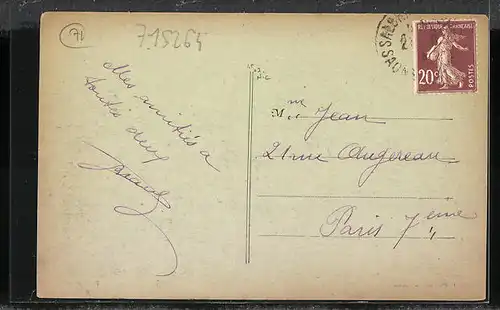 71
715264
Mes amitiés a
toutes deux
REPUBLIQUE FRANÇAISE
20c
POSTES
Mme Jean
21 rue Augereau
Paris 7eme